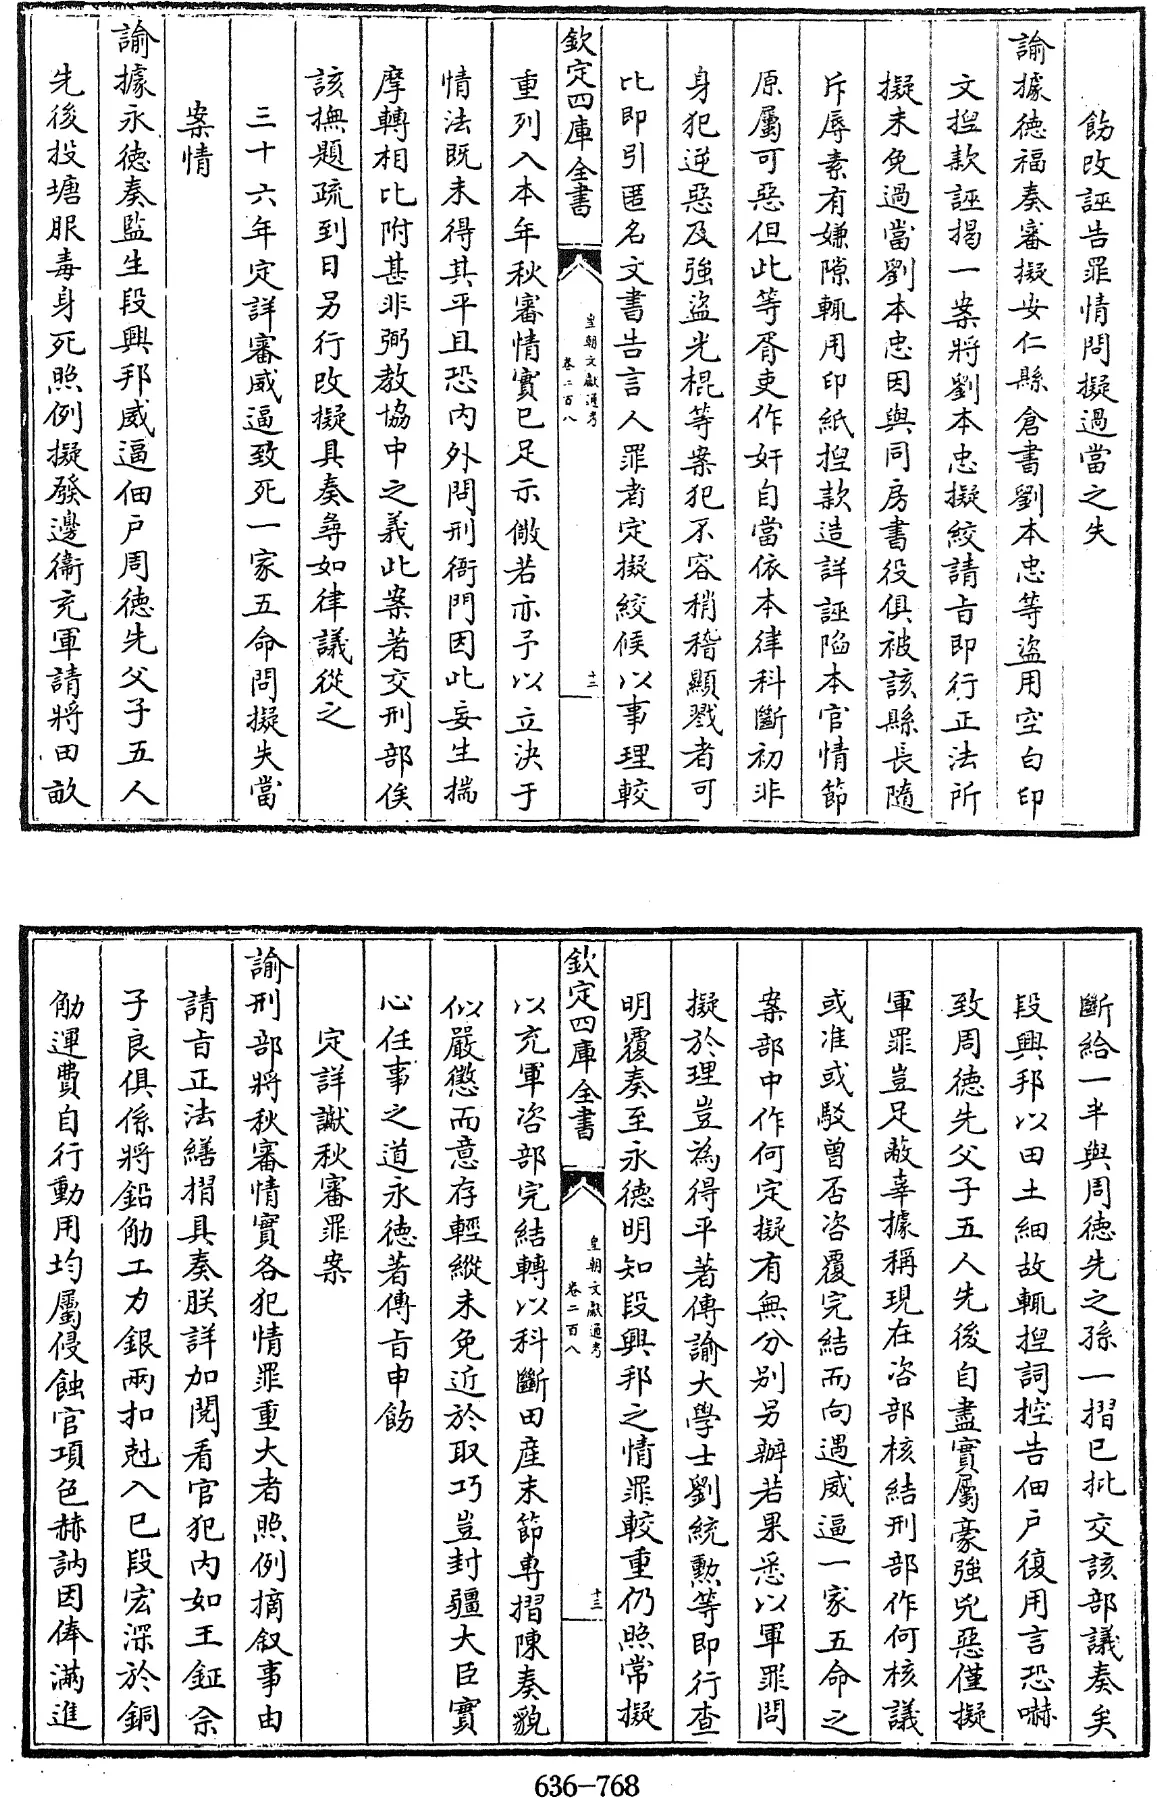 飭改誣告罪情問擬過當之失
諭據德福奏審擬安仁縣倉書劉本忠等盜用空白印
文揑款誣揭一案將劉本忠擬絞請㫖即行正法所
擬未免過當劉本忠因與同房書役俱被該縣長隨
斥辱素有嫌隙輒用印紙揑款造詳誣陷本官情節
原屬可惡但此等胥吏作奸自當依本律科斷初非
身犯逆惡及強盜光棍等案犯不容稍稽顯戮者可
比即引匿名文書告言人罪者定擬絞候以事理較
欽定四庫全書
皇朝文獻通考
卷二百八
十二
重列入本年秋審情實已足示儆若亦予以立決于
情法既未得其平且恐内外問刑衙門因此妄生揣
摩轉相比附甚非弼教協中之義此案著交刑部俟
該撫題疏到日另行改擬具奏尋如律議從之
三十六年定詳審威逼致死一家五命問擬失當
案情
諭據永德奏監生段興邦威逼佃户周德先父子五人
先後投塘服毒身死照例擬發邊衞充軍請將田畝
斷給一半與周德先之孫一摺已批交該部議奏矣
段興邦以田土細故輒揑詞控告佃户復用言恐嚇
致周德先父子五人先後自盡實屬豪強兇惡僅擬
軍罪豈足蔽辜據稱現在咨部核結刑部作何核議
或准或駁曾否咨覆完結而向遇威逼一家五命之
案部中作何定擬有無分别另辦若果悉以軍罪問
擬於理豈為得平著傳諭大學士劉統勲等即行查
明覆奏至永德明知段興邦之情罪較重仍照常擬
欽定四庫全書
皇朝文獻通考
卷二百八
十三
以充軍咨部完結轉以科斷田產末節專摺陳奏貌
似嚴懲而意存輕縱未免近於取巧豈封疆大臣實
心任事之道永德著傳㫖申飭
定詳讞秋審罪案
諭刑部將秋審情實各犯情罪重大者照例摘叙事由
請㫖正法繕摺具奏朕詳加閲看官犯内如王鉦佘
子良俱係將鉛觔工力銀兩扣尅入己段宏深於銅
觔運費自行動用均屬侵蝕官項色赫訥因俸滿進
636-768